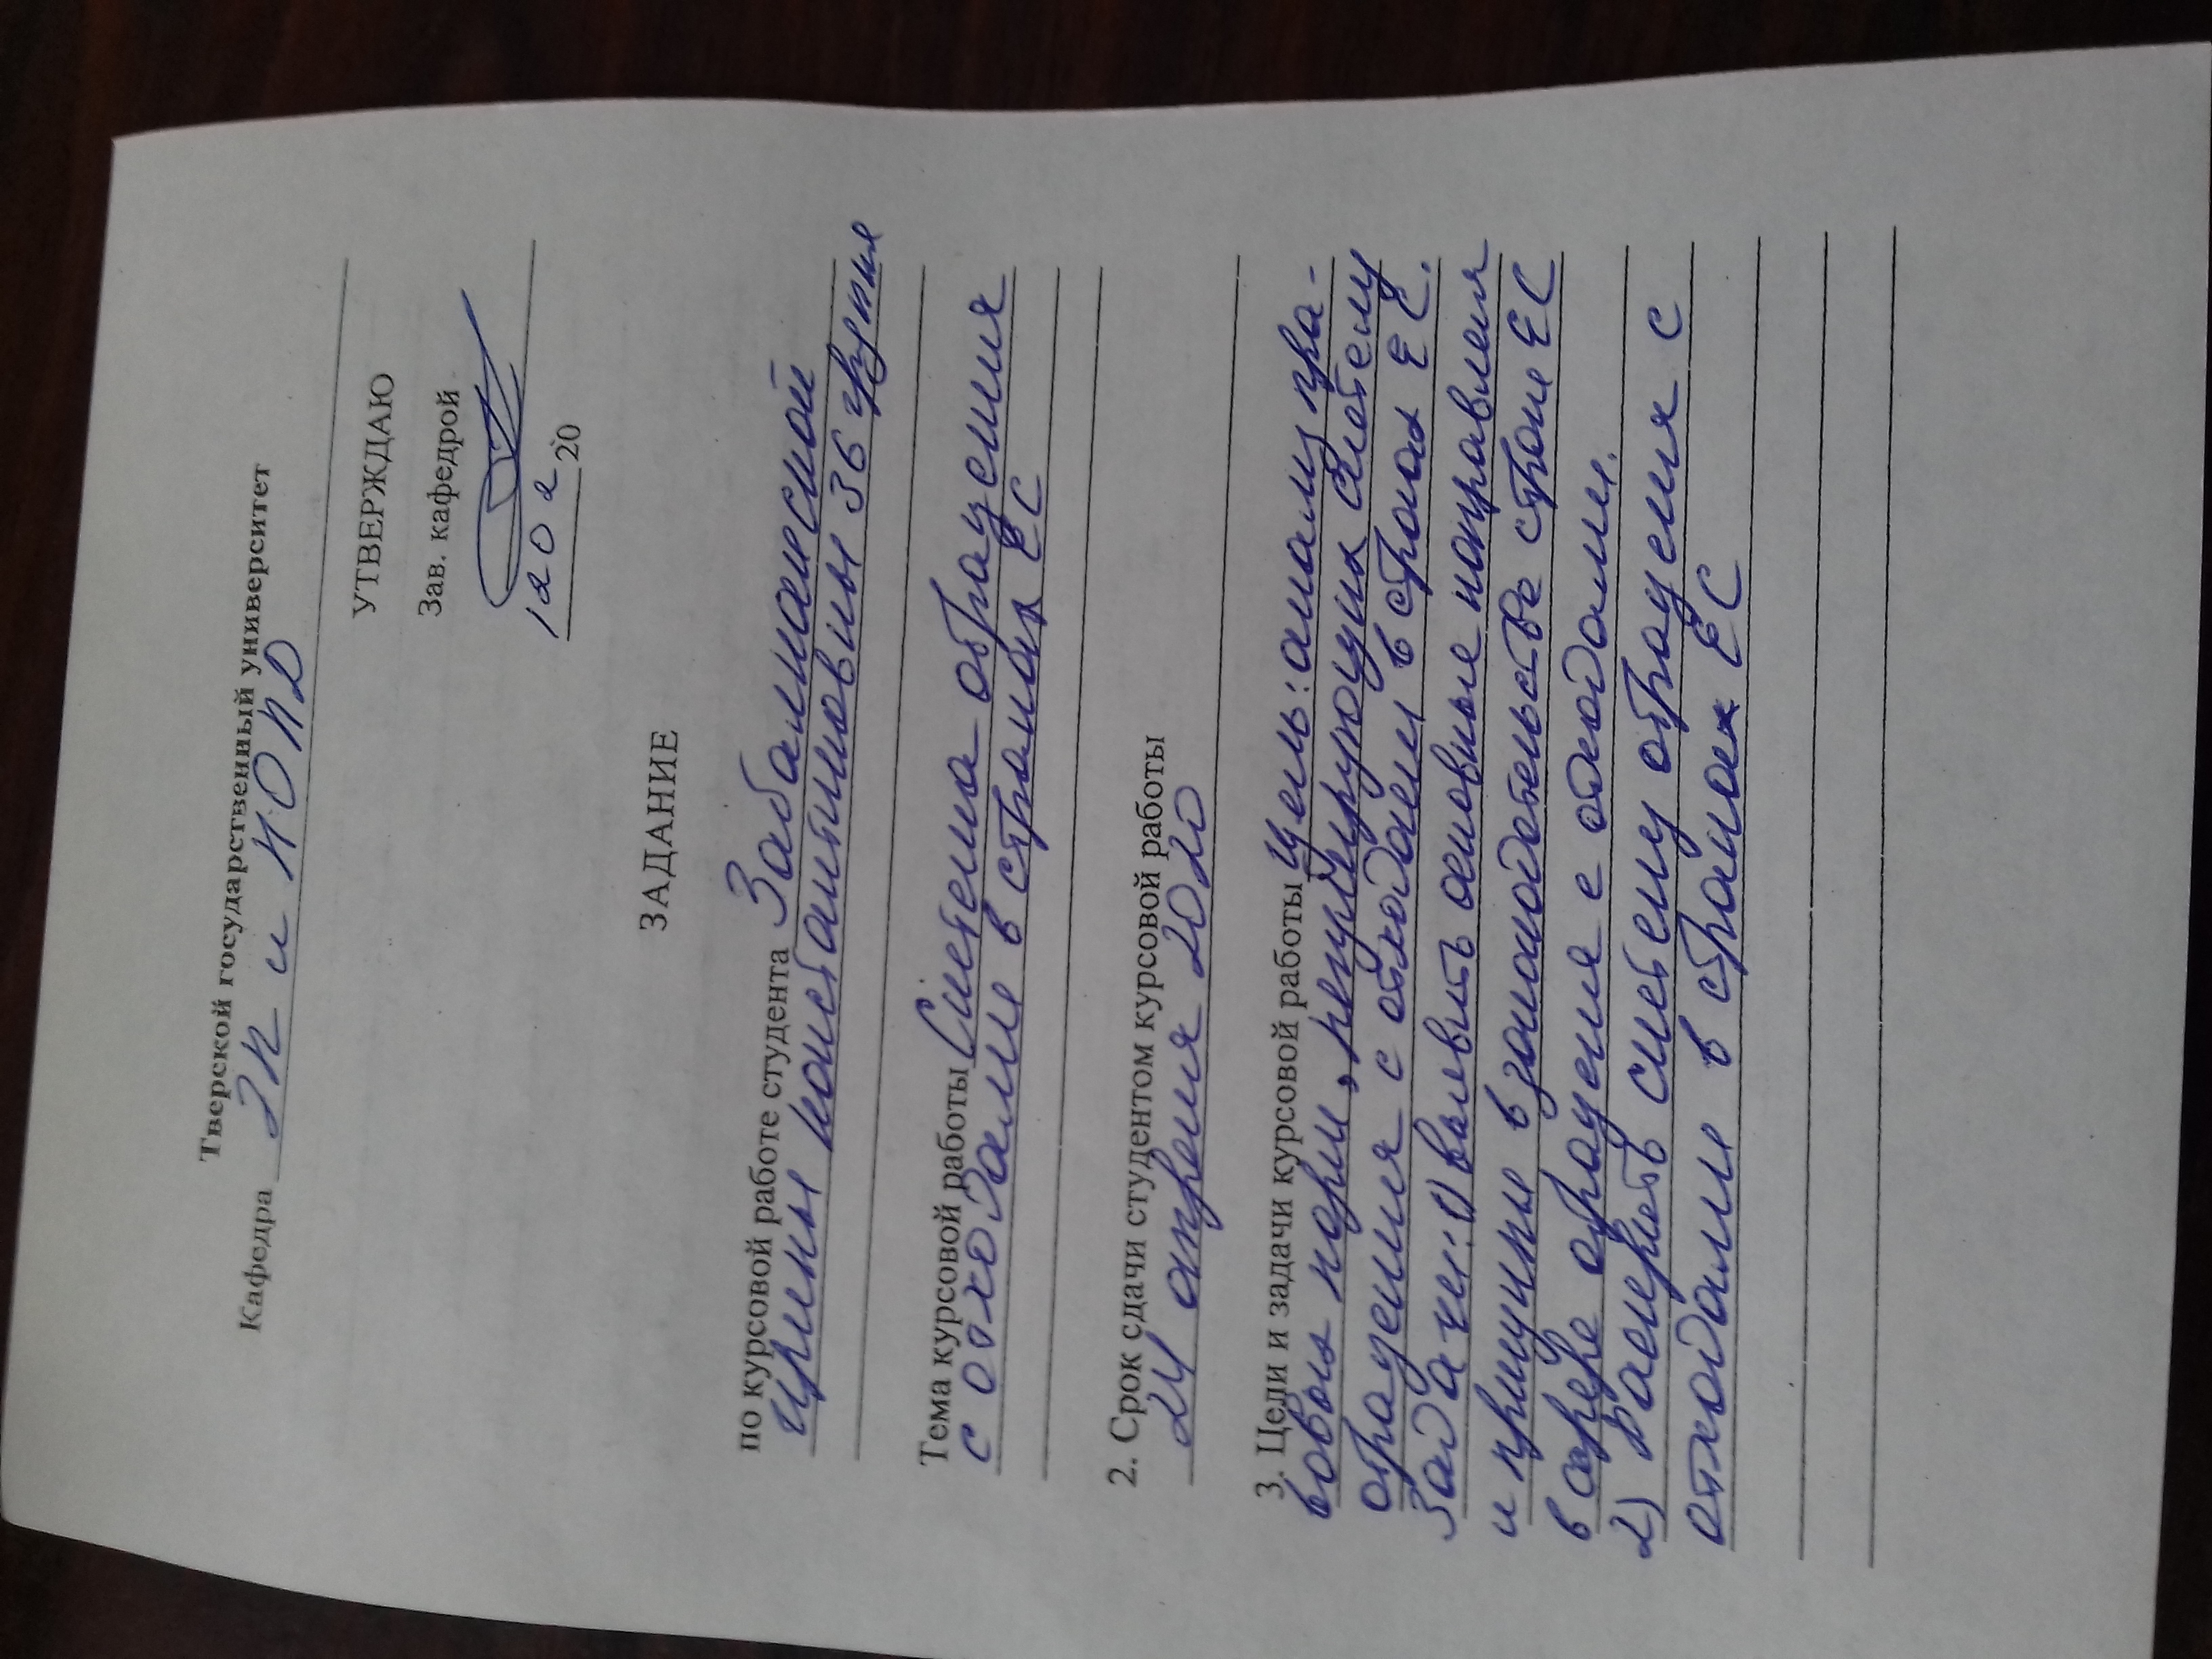 Тверской государственный университет
Кафедра ЭП и ЮПД
УТВЕРЖДАЮ
Зав. кафедрой
12 02 20
ЗАДАНИЕ
по курсовой работе студента Забалканской
Ирины Константиновны 36 группы
Тема курсовой работы Система обращения
с отходами в странах ЕС
2. Срок сдачи студентом курсовой работы
24 апреля 2020
3. Цели и задачи курсовой работы Цель: анализ пра-
вовых норм, регулирующих систему
обращения с отходами в странах ЕС.
Задачи: 1) выявить основные направления
и принципы в законодательстве стран ЕС
в сфере обращения с отходами.
2) Рассмотреть систему обращения с
отходами в странах ЕС